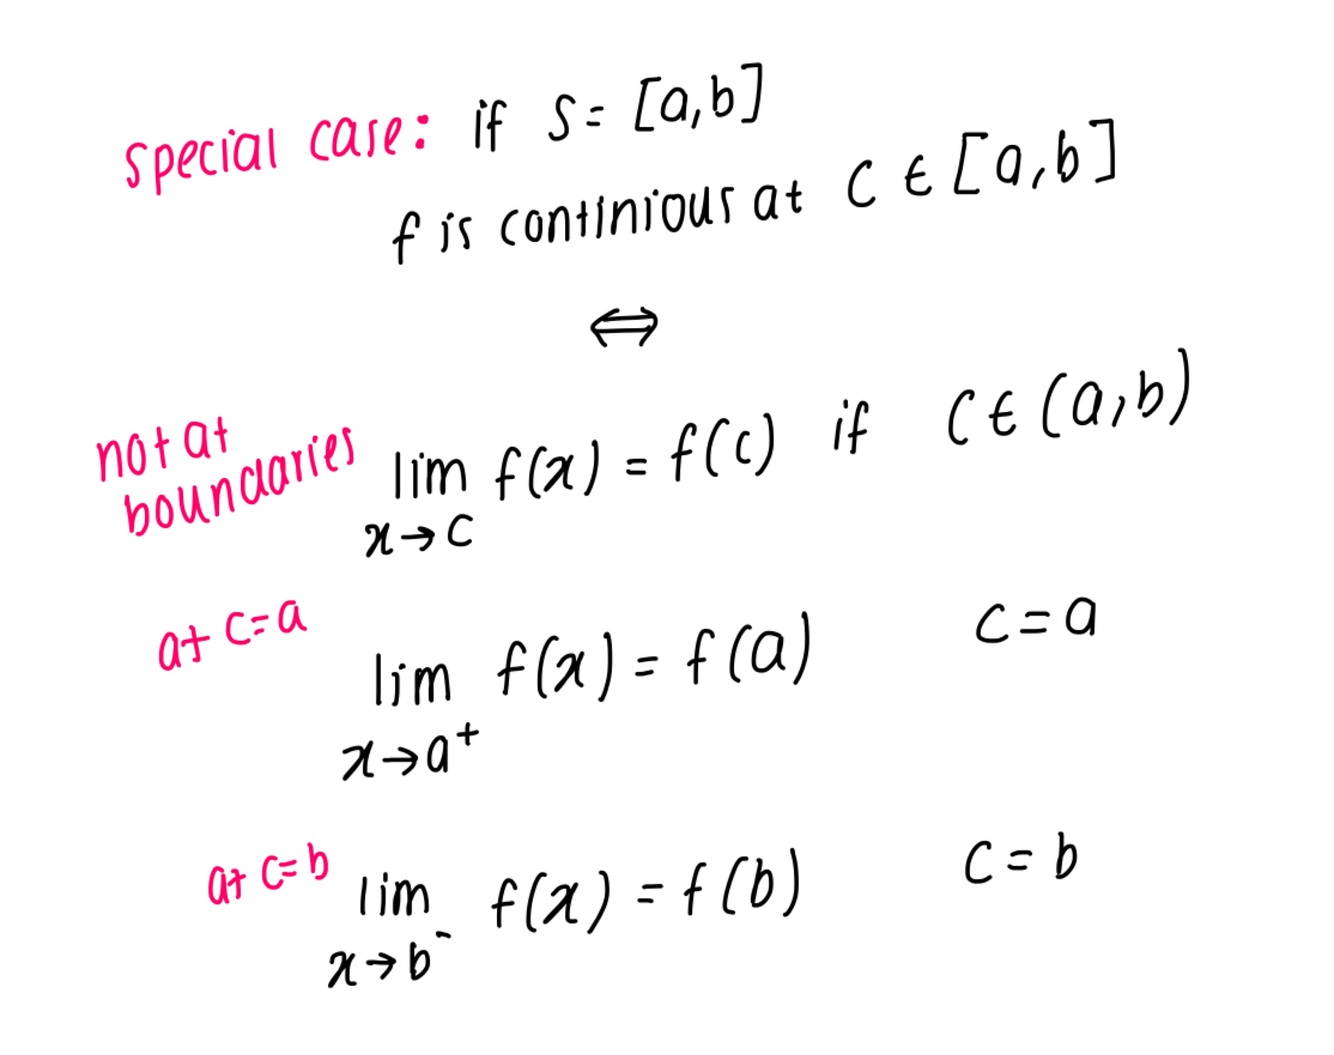 special case: if S = [a,b]
f is continious at C ∈ [a,b]
⟺
not at
boundaries
lim f(x) = f(c) if C ∈ (a,b)
x→c
at c=a
lim f(x) = f(a) c = a
x→a⁺
at c=b
lim f(x) = f(b) c = b
x→b⁻